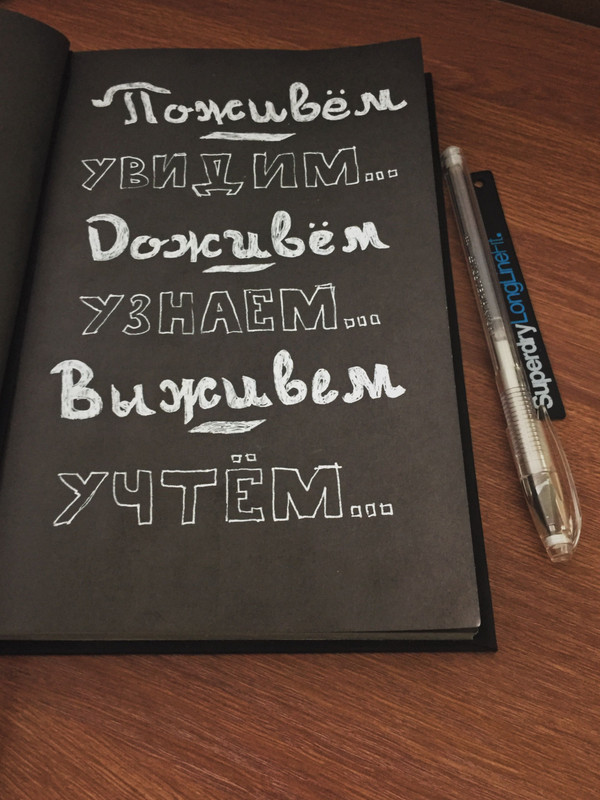 Поживём
УВИДИМ...
Доживём
УЗНАЕМ...
Выживем
УЧТЁМ...
Superdry LongLineHit.